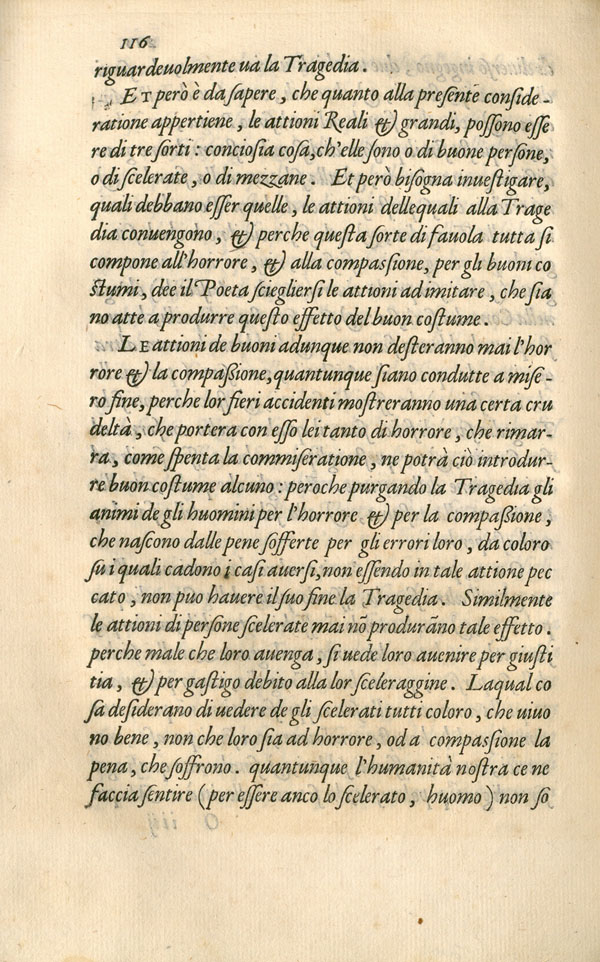 116
riguardeuolmente ua la Tragedia.
ET però è da sapere, che quanto alla presente conside-
ratione appertiene, le attioni Reali & grandi, possono esse
re di tre sorti: conciosia cosa, ch'elle sono o di buone persone,
o di scelerate, o di mezzane. Et però bisogna inuestigare,
quali debbano esser quelle, le attioni dellequali alla Trage
dia conuengono, & perche questa sorte di fauola tutta si
compone all'horrore, & alla compassione, per gli buoni co
stumi, dee il Poeta sciegliersi le attioni ad imitare, che sia
no atte a produrre questo effetto del buon costume.
LE attioni de buoni adunque non desteranno mai l'hor
rore & la compaßione, quantunque siano condutte a mise-
ro fine, perche lor fieri accidenti mostreranno una certa cru
deltà, che portera con esso lei tanto di horrore, che rimar-
ra, come spenta la commiseratione, ne potrà ciò introdur-
re buon costume alcuno: peroche purgando la Tragedia gli
animi de gli huomini per l'horrore & per la compaßione,
che nascono dalle pene sofferte per gli errori loro, da coloro
su i quali cadono i casi auersi, non essendo in tale attione pec
cato, non puo hauere il suo fine la Tragedia. Similmente
le attioni di persone scelerate mai nõ produrãno tale effetto.
perche male che loro auenga, si uede loro auenire per giusti
tia, & per gastigo debito alla lor sceleraggine. Laqual co
sa desiderano di uedere de gli scelerati tutti coloro, che uiuo
no bene, non che loro sia ad horrore, od a compassione la
pena, che soffrono. quantunque l'humanità nostra ce ne
faccia sentire (per essere anco lo scelerato, huomo) non so